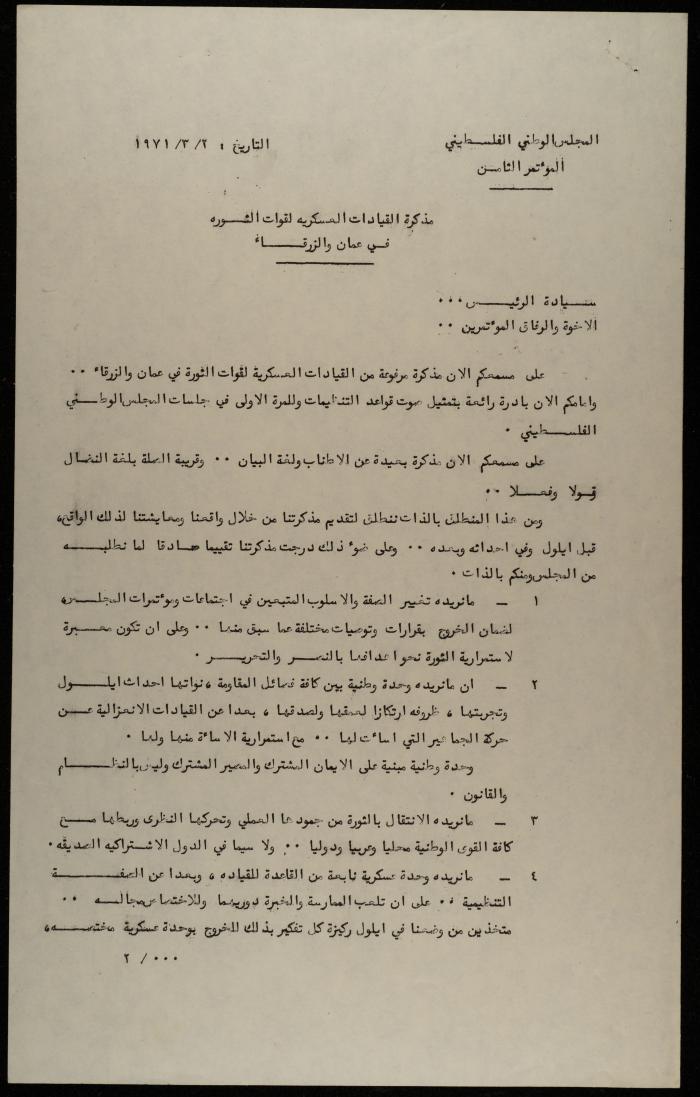 المجلس الوطني الفلسطيني
التاريخ : ١٩٧١/٣/٢
المؤتمر الثامن
مذكرة القيادات العسكريه لقوات الثوره
في عمان والزرقاء
سيادة الرئيس ٠٠٠
الاخوة والرفاق المؤتمرين ٠٠
على مسمعكم الان مذكرة مرفوعة من القيادات العسكرية لقوات الثورة في عمان والزرقاء ٠٠
وامامكم الان بادرة رائعة بتمثيل صوت قواعد التنظيمات وللمرة الاولى في جلسات المجلس الوطني
الفلسطيني ٠
على مسمعكم الان مذكرة بعيدة عن الاطناب ولغة البيان ٠٠ وقريبة الصلة بلغة النضال
قولا وفعلا ٠٠
ومن هذا المنطلق بالذات ننطلق لتقديم مذكرتنا من خلال واقعنا ومعايشتنا لذلك الواقع،
قبل ايلول وفي احداثه وبعده ٠٠ وعلى ضوء ذلك درجت مذكرتنا تقييما صادقا لما نطلبه
من المجلس ومنكم بالذات ٠
١ ــ مانريده تغيير الصفة والاسلوب المتبعين في اجتماعات ومؤتمرات المجلس،
لضمان الخروج بقرارات وتوصيات مختلفة عما سبق منها ٠٠ وعلى ان تكون معبرة
لاستمرارية الثورة نحو اهدافها بالنصر والتحرير ٠
٢ ــ ان مانريده وحدة وطنية بين كافة فصائل المقاومة ، نواتها احداث ايلول
وتجربتها ، ظروفه ارتكازا لعمقها ولصدقها ، بعدا عن القيادات الانعزالية عن
حركة الجماهير التي اساءت لها ٠٠ مع استمرارية الاساءة منها ولها ٠
وحدة وطنية مبنية على الايمان المشترك والمصير المشترك وليس بالنظام
والقانون ٠
٣ ــ مانريده الانتقال بالثورة من جمودها العملي وتحركها النظرى وربطها مع
كافة القوى الوطنية محليا وعربيا ودوليا ٠٠ ولا سيما في الدول الاشتراكيه الصديقه ٠
٤ ــ مانريده وحدة عسكرية نابعة من القاعدة للقياده ، وبعدا عن الصفة
التنظيمية ٠٠ على ان تلعب الممارسة والخبرة دوريهما وللاختصاص مجاله ٠٠
متخذين من وضعنا في ايلول ركيزة كل تفكير بذلك للخروج بوحدة عسكرية مختصه،
٢ /٠٠٠